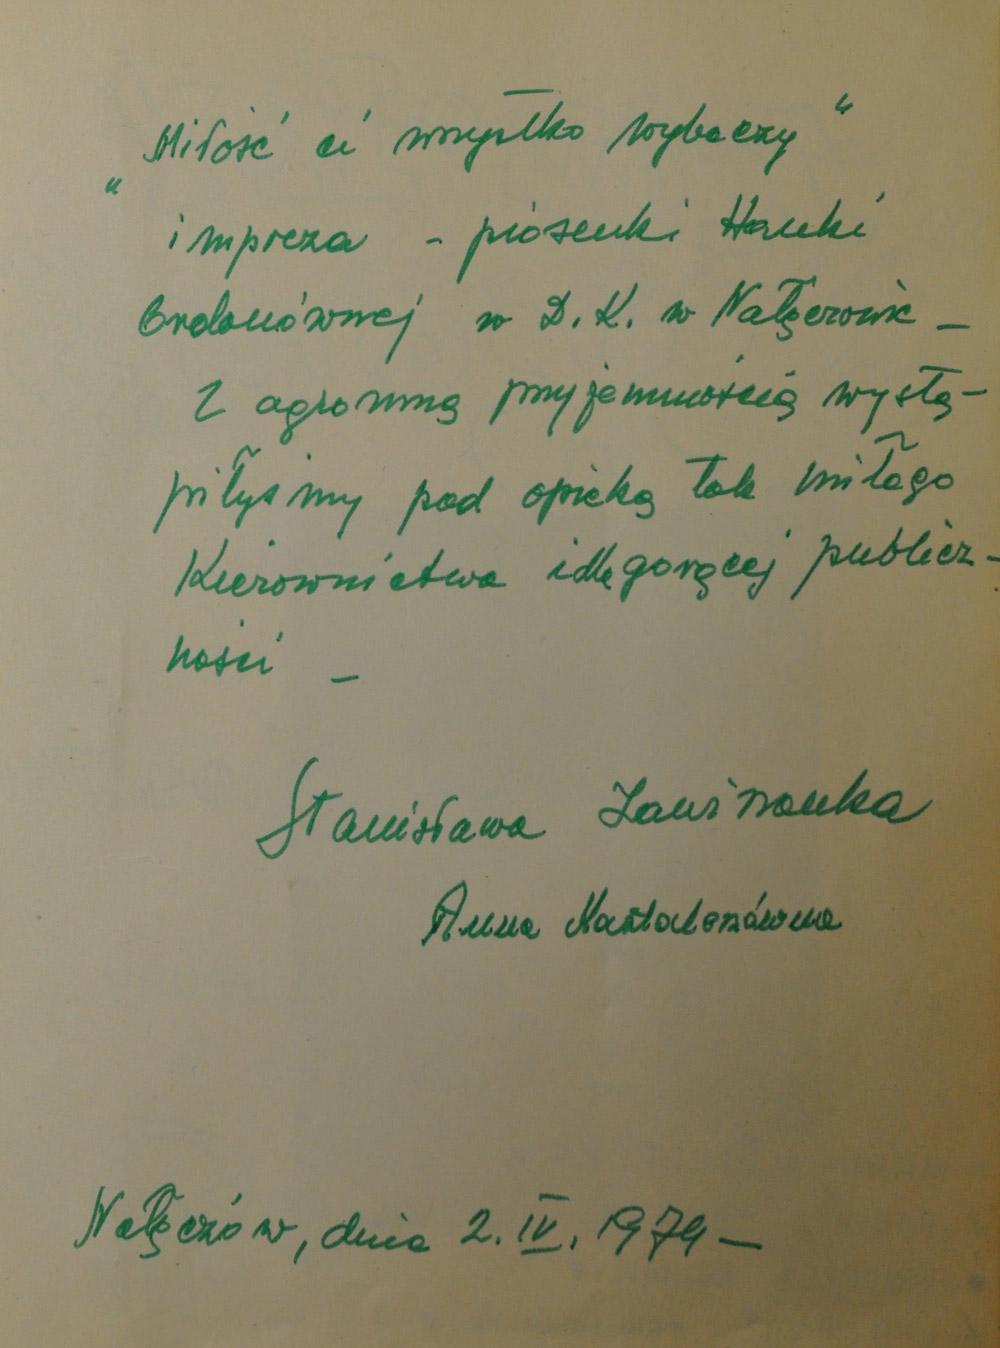 "Miłość ci wszystko wybaczy"
impreza - piosenki Hanki
Ordonównej w D.K. w Nałęczowie –
Z ogromną przyjemnością wystą-
piłyśmy pod opieką tak miłego
Kierownictwa i dla gorącej publicz-
ności –
Stanisława
Anna
Nałęczów, dnia 2.IV.1979 –